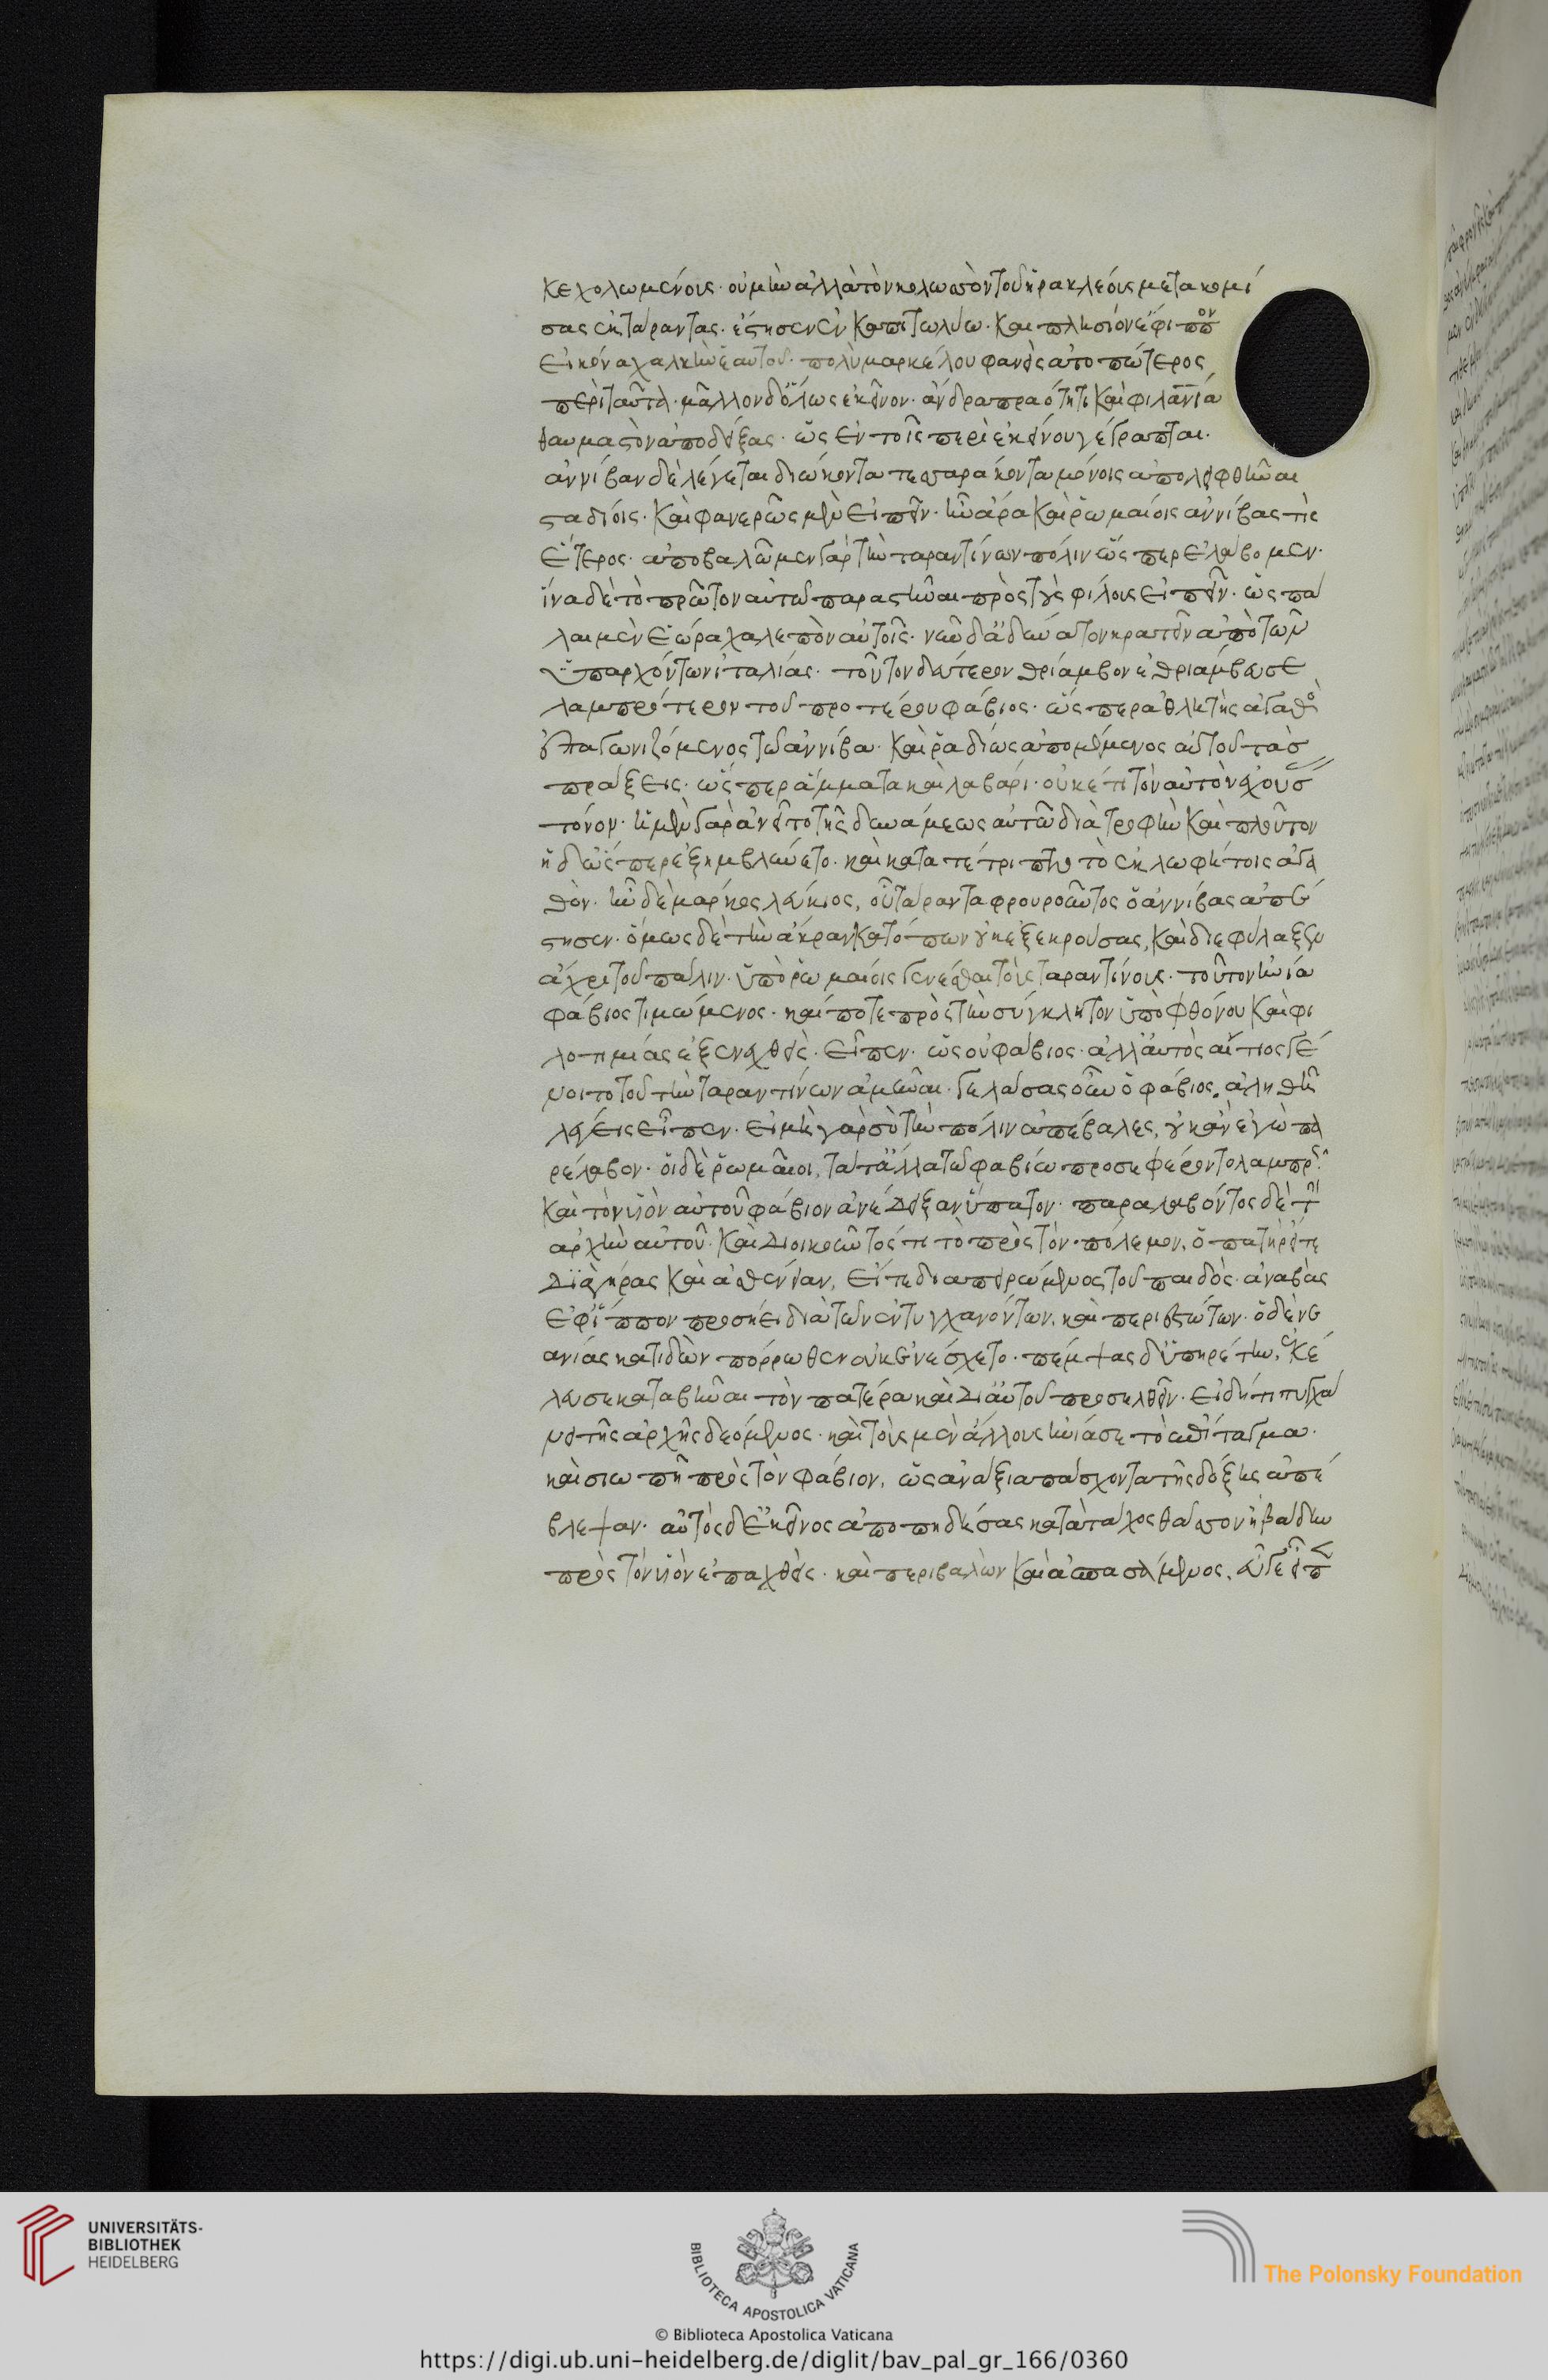 κεχολωμένοις· οὐ μὴν ἀλλὰ τὸν κολωσσὸν τοῦ ἡρακλέους μετακομί
σας ἐκ τάραντος· ἔστησεν ἐν καπιτωλίω· καὶ πλησίον ἔφιππον
εἰκόνα χαλκῆν ἑαυτοῦ· πολὺ μαρκέλου φανεὶς ἀτοπώτερος
περὶ ταῦτα· μᾶλλον δ' ὅλως ἐκεῖνον· ἄνδρα πραότητι καὶ φιλανία
θαυμαστὸν ἀποδείξας· ὡς ἐν τοῖς περὶ ἐκείνου γέγραπται·
ἀννίβαν δὲ λέγεται διώκοντα τεσσαράκοντα μόνοις ἀπολειφθῆναι
σταδίοις· καὶ φανερῶς μὲν εἰπεῖν· ἦν ἄρα καὶ ῥωμαίοις ἀννίβας τὶς
ἕτερος· ἀπεβαλῶμεν γὰρ τὴν ταραντίνων πόλιν ὥσπερ ἐλάβομεν·
ἵνα δὲ τὸ πρῶτον αὐτῶ παραστῆναι πρὸς τοὺς φίλους εἰπεῖν· ὡς πά
λαι μὲν ἑώρα χαλεπὸν αὐτοῖς· νῦν δ' ἀδύνατον κρατεῖν ἀπὸ τῶν
ὑπαρχόντων ἰταλίας· τοῦτον δεύτερον θρίαμβον ἐθριάμβευσε
λαμπρότερον τοῦ προτέρου φάβιος· ὥσπερ ἀθλητὴς ἀγαθὸ
ἐπαγωνιζόμενος τῶ ἀννίβα· καὶ ῥαδίως ἀπολυόμενος αὐτοῦ τὰσ
πράξεις· ὥσπερ ἅμματα καὶ λαβὰς· οὐκέτι τὸν αὐτὸν ἐχούσ
τόνον· ἡ μὲν γὰρ ἀνεῖτο τῆς δυνάμεως αὐτῶ διὰ τρυφὴν καὶ πλοῦτον
ἡ δ' ὥσπερ ἐξημβλύνετο· καὶ κατατέτριπτο τοῖς ἀγῶ
ἦν δὲ μάρκος λεύκιος, οὗ τάραντα φρουροῦντος ὁ ἀννίβας ἀπέ
στησεν· ὅμως δὲ τὴν ἄκραν κατόπων οὐκ ἐξεκρούσας, καὶ διεφύλαξεν
ἄχρι τοῦ πάλιν· ὑπὸ ῥωμαίοις γενέσθαι τοὺς ταραντίνους· τοῦτον ἠνία
φάβιος τιμώμενος· καί ποτε πρὸς τὴν σύγκλητον ὑπὸ φθόνου καὶ φι
λοτιμίας ἐξενεχθεὶς· εἶπεν· ὡς οὐ φάβιος· ἀλλ' αὐτὸς αἴτιος γέ
νοιτο τοῦ τὴν ταραντίνων ἁλῶναι· γελάσας οὖν ὁ φάβιος, ἀληθῆ
λέγεις εἶπεν· εἰ μὴ γὰρ σὺ τὴν πόλιν ἀπέβαλες, οὐκ ἂν ἐγὼ πα
ρέλαβον· οἱ δὲ ῥωμαῖοι, τά τ' ἄλλα τῶ φαβίω προσεφέροντο λαμπρῶς·
καὶ τὸν υἱὸν αὐτοῦ φάβιον ἀνέδειξαν ὕπατον· παραλαβόντος δὲ τὴν
ἀρχὴν αὐτοῦ· καὶ διοικοῦντός τι τῶ πρὸς τὸν πόλεμον, ὁ πατὴρ εἴτε
διὰ γῆρας καὶ ἀσθένειαν, εἴτε διαπειρώμενος τοῦ παιδὸς· ἀναβὰς
ἐφ' ἵππον προσήει διὰ τῶν ἐντυγχανόντων, καὶ περιεστώτων· ὁ δὲ νε
ανίας κατιδὼν πόρρωθεν οὐκ ἠνέσχετο· πέμψας δ' ὑπηρέτην, ἐκέ
λευσε καταβῆναι τὸν πατέρα καὶ δι' αὐτοῦ προσελθεῖν· εἰ δή τι τυγχά
νει τῆς ἀρχῆς δεόμενος· καὶ τοὺς μὲν ἄλλους ἠνίασε τὸ ἐπίταγμα·
καὶ σιωπῆ πρὸς τὸν φάβιον, ὡς ἀνάξια πάσχοντα τῆς δόξης ἀπέ
βλεψαν· αὐτὸς δ' ἐκεῖνος ἀποπηδήσας κατὰ τάχος θᾶσσον ἢ βάδην
πρὸς τὸν υἱὸν ἐπαχθεὶς· καὶ περιβαλὼν καὶ ἀσπασάμενος, εὖγε εἶπ
UNIVERSITÄTS-
BIBLIOTHEK
HEIDELBERG
BIBLIOTECA APOSTOLICA VATICANA
The Polonsky Foundation
© Biblioteca Apostolica Vaticana
https://digi.ub.uni-heidelberg.de/diglit/bav_pal_gr_166/0360